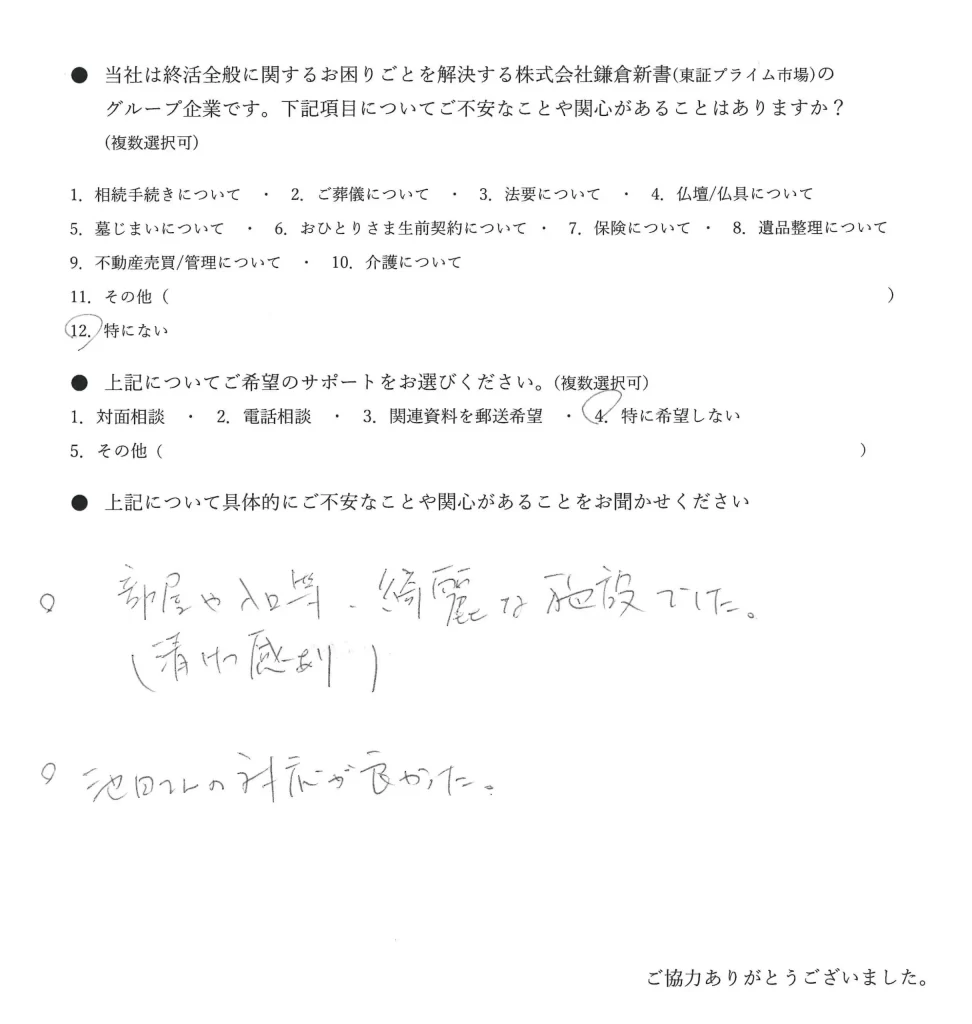 ● 当社は終活全般に関するお困りごとを解決する株式会社鎌倉新書(東証プライム市場)の
グループ企業です。下記項目についてご不安なことや関心があることはありますか？
(複数選択可)
1. 相続手続きについて ・ 2. ご葬儀について ・ 3. 法要について ・ 4. 仏壇/仏具について
5. 墓じまいについて ・ 6. おひとりさま生前契約について ・ 7. 保険について ・ 8. 遺品整理について
9. 不動産売買/管理について ・ 10. 介護について
11. その他（ ）
12. 特にない
● 上記についてご希望のサポートをお選びください。(複数選択可)
1. 対面相談 ・ 2. 電話相談 ・ 3. 関連資料を郵送希望 ・ 4. 特に希望しない
5. その他（ ）
● 上記について具体的にご不安なことや関心があることをお聞かせください
○ 部屋や入口等、綺麗な施設でした。
(清けつ感あり)
○ 池田さんの対応が良かった。
ご協力ありがとうございました。